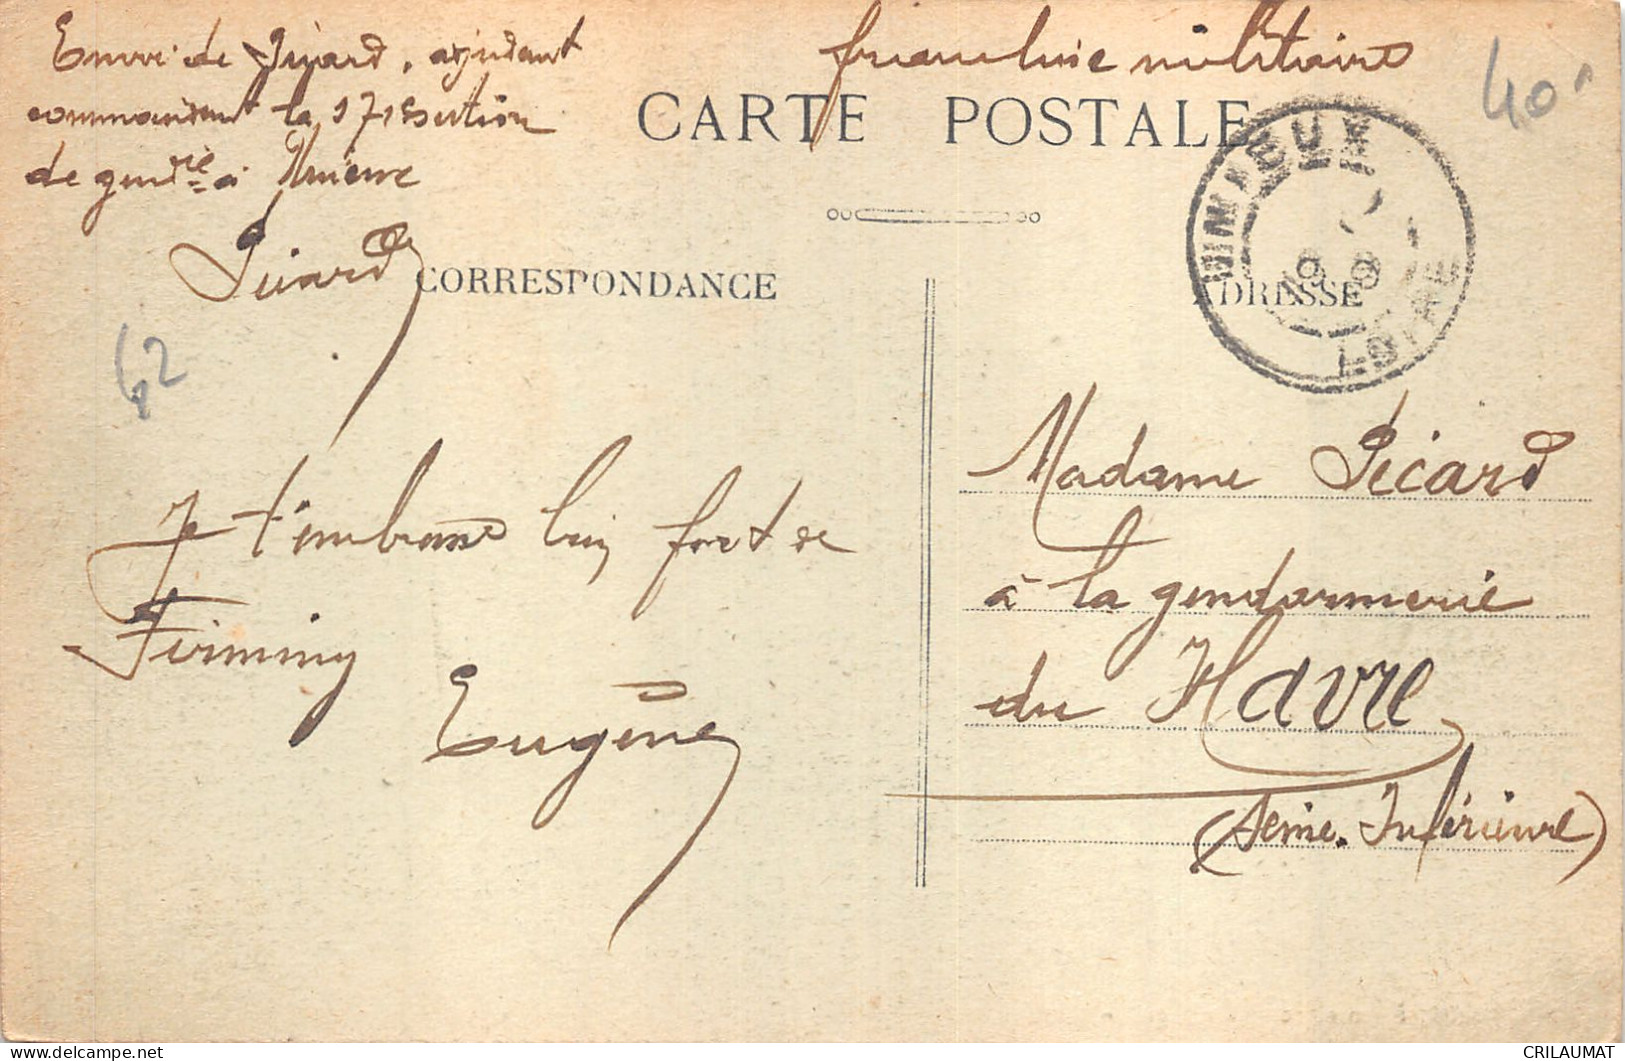 Envoi de Picard, adjudant
commandant la 171e section
de gendrie à Unieux
Picard
franchise militaire
40
CARTE POSTALE
UNIEUX
19
LOIRE
CORRESPONDANCE
ADRESSE
62
Je t'embrasse bien fort de
Firminy
Eugène
Madame Picard
à la gendarmerie
du Havre
(Seine-Inférieure)
CRILAUMAT